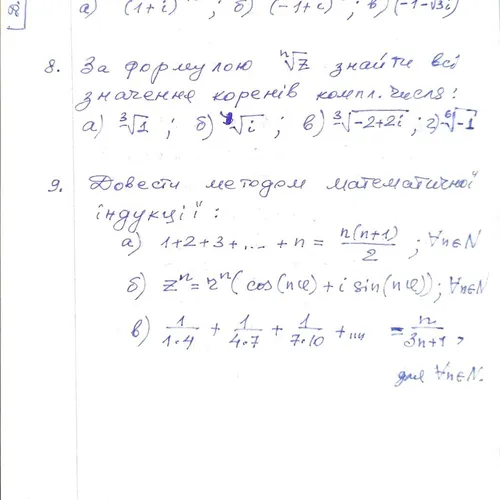 а) (1+i) ; б) (-1+i) ; в) (-1-√3i)
8. За формулою ⁿ√z знайти всі
значення коренів компл. числа:
а) ³√1 ; б) ⁴√i ; в) ³√-2+2i ; г) ⁶√-1
9. Довести методом математичної
індукції:
а) 1+2+3+...+n = n(n+1)/2 ; ∀n∈N
б) zⁿ=rⁿ(cos(nφ)+i sin(nφ)); ∀n∈N
в) 1/1·4 + 1/4·7 + 1/7·10 +... = n/3n+1,
для ∀n∈N.